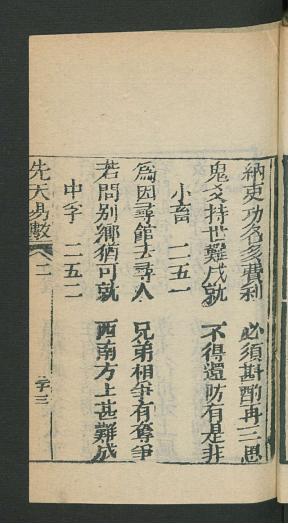 納吏功名多費利　必須斟酌再三思
鬼爻持世難成就　不得還防有是非
小畜　二五一
為因尋館去尋人　兄弟相爭有奪爭
若問别鄉猶可就　西南方上甚難成
中孚　二五二
先天易數　二　孚三